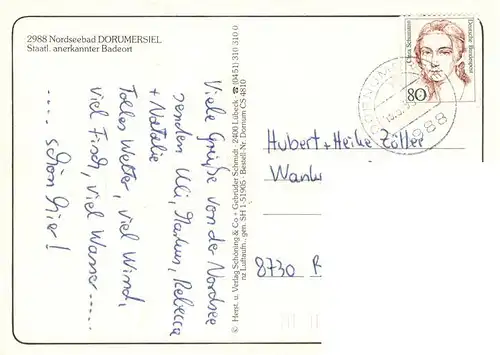 2988 Nordseebad DORUMERSIEL
Staatl. anerkannter Badeort
Viele Grüße von der Nordsee
senden Uli, Markus, Rebecca
+ Natalie
Tolles Wetter, viel Wind,
viel Fisch, viel Wasser.....
..... schön hier!
© Herst. u. Verlag Schöning & Co + Gebrüder Schmidt, 2400 Lübeck ☎ (0451) 310 310 0
nz Luftaufn., gen. SH 1-51905 - Bestell Nr. Dornum CS 4810
Clara Schumann
Deutsche Bundespost
80
2988
Hubert + Heike Zöller
8730